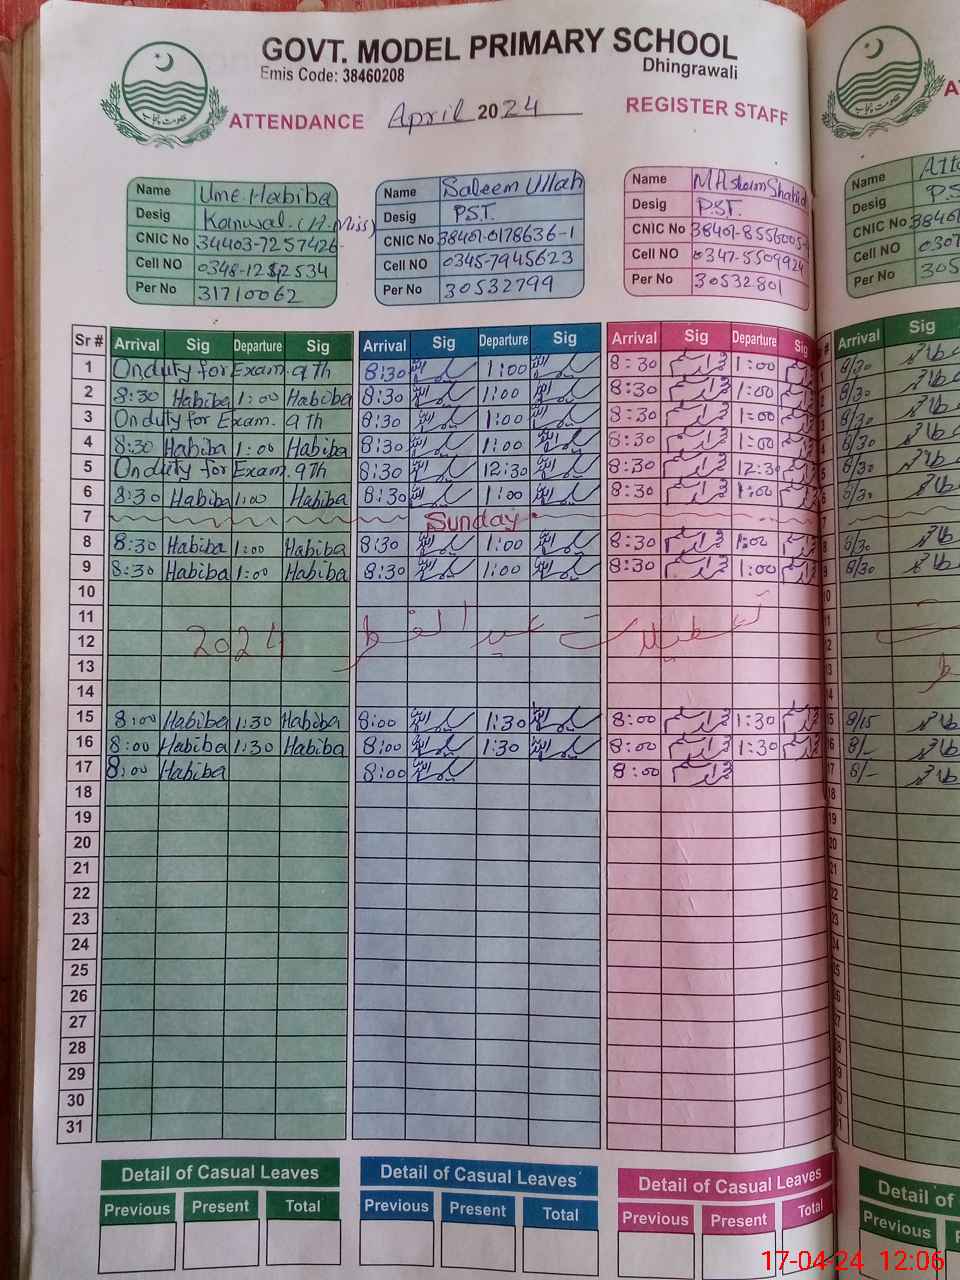 GOVT. MODEL PRIMARY SCHOOL
Emis Code: 38460208 Dhingrawali
ATTENDANCE April 2024 REGISTER STAFF
Name Ume Habiba
Desig Kanwal. (H.Miss)
CNIC No 34403-7257426-
Cell NO
Per No 31710062
Name Saleem Ullah
Desig P.S.T.
CNIC No 38401-0178636-1
Cell NO 0345-7945623
Per No 30532799
Name
Desig P.S.T.
CNIC No
Cell NO
Per No 30532801
Name
Desig
CNIC No
Cell NO
Per No
Sr # Arrival Sig Departure Sig Arrival Sig Departure Sig Arrival Sig Departure Sig Arrival Sig
1 On duty for Exam. 9th 8:30 1:00 8:30 1:00 8/30
2 8:30 Habiba 1:00 Habiba 8:30 1:00 8:30 1:00 8/30
3 On duty for Exam. 9th 8:30 1:00 8:30 1:00 8/30
4 8:30 Habiba 1:00 Habiba 8:30 1:00 8:30 1:00 8/30
5 On duty for Exam. 9th 8:30 12:30 8:30 12:30 8/30
6 8:30 Habiba 1:00 Habiba 8:30 1:00 8:30 1:00 8/30
7 Sunday
8 8:30 Habiba 1:00 Habiba 8:30 1:00 8:30 1:00 8/30
9 8:30 Habiba 1:00 Habiba 8:30 1:00 8:30 1:00 8/30
10
11
تعطیلات عید الفطر 2024
12
13
14
15 8:00 Habiba 1:30 Habiba 8:00 1:30 8:00 1:30 8/15
16 8:00 Habiba 1:30 Habiba 8:00 1:30 8:00 1:30 8/-
17 8:00 Habiba 8:00 8:00 8/-
18
19
20
21
22
23
24
25
26
27
28
29
30
31
Detail of Casual Leaves Detail of Casual Leaves Detail of Casual Leaves Detail of
Previous Present Total Previous Present Total Previous Present Total Previous
17-04-24 12:06